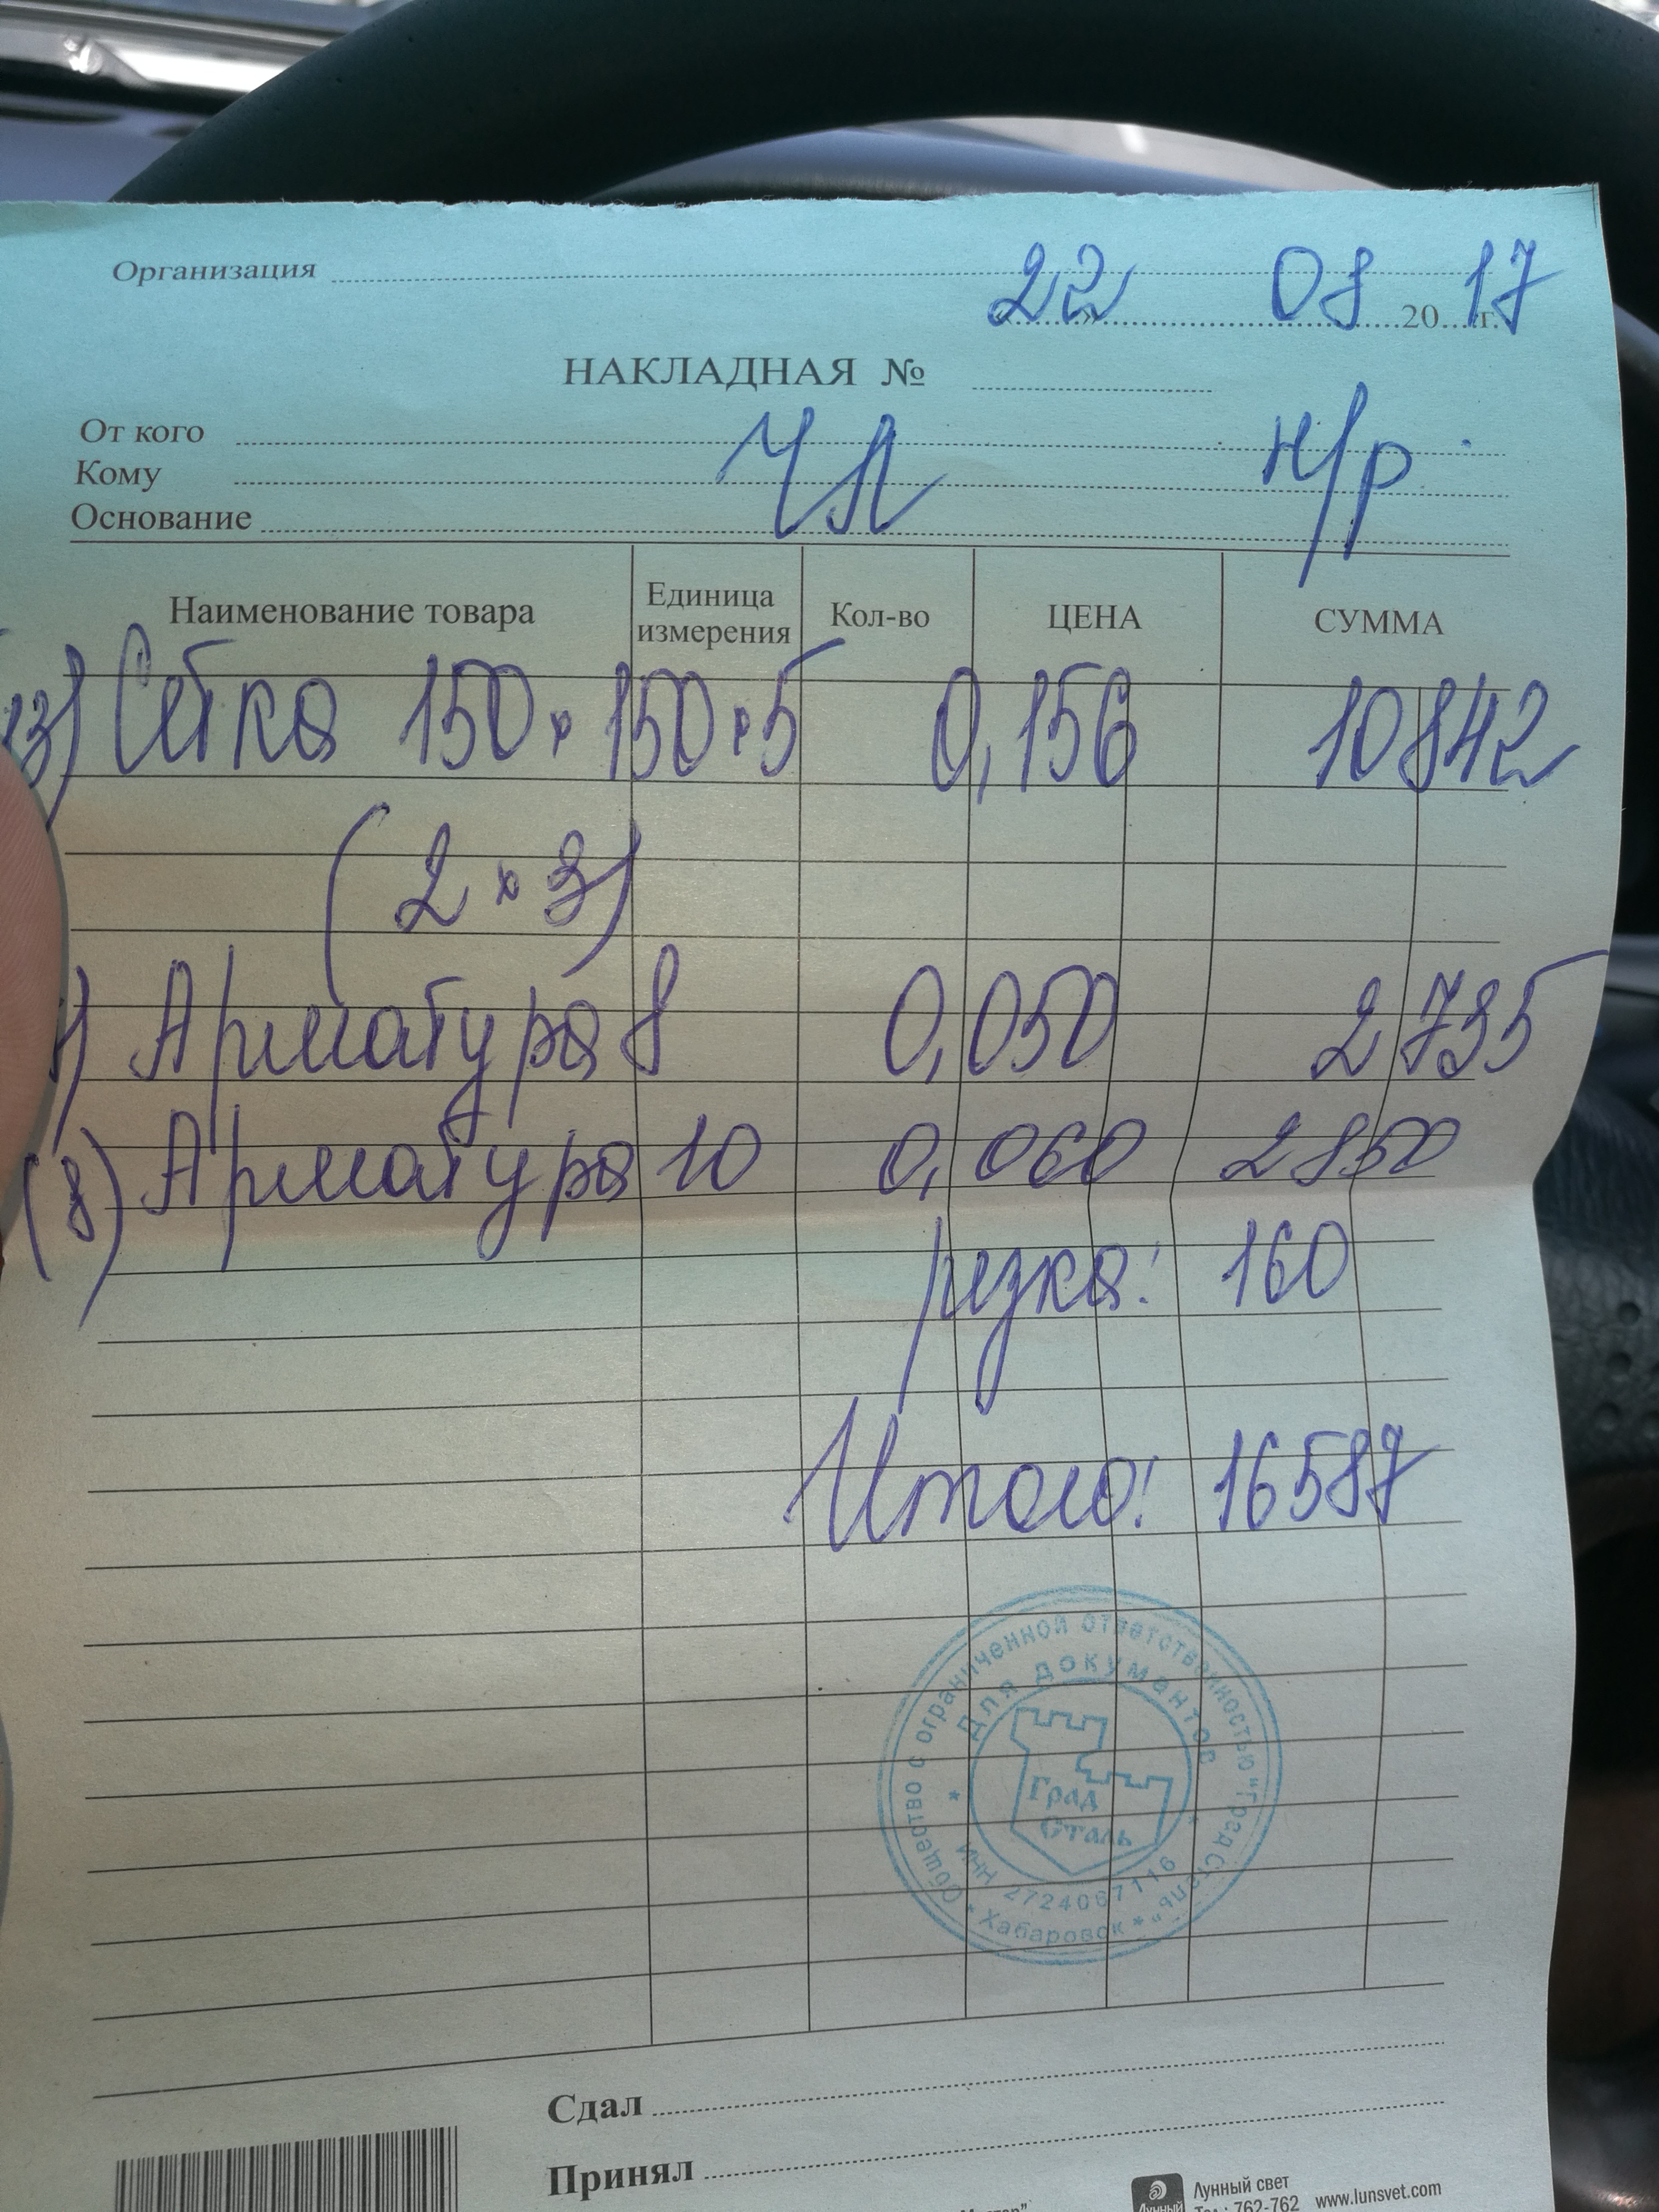 Организация
22 08 2017 г.
НАКЛАДНАЯ №
От кого
Кому ЧЛ н/р
Основание
Наименование товара Единица измерения Кол-во ЦЕНА СУММА
13) Сетка 150 x 150 x 5 0,156 10842
(2 x 3)
Арматура 8 0,050 2735
(8) Арматура 10 0,060 2850
резка: 160
Итого: 16587
Общество с ограниченной ответственностью "Град Сталь"
Для документов
Град
Сталь
ИНН 2724067116
* Хабаровск *
Сдал
Принял
Лунный свет
Тел.: 762-762 www.lunsvet.com